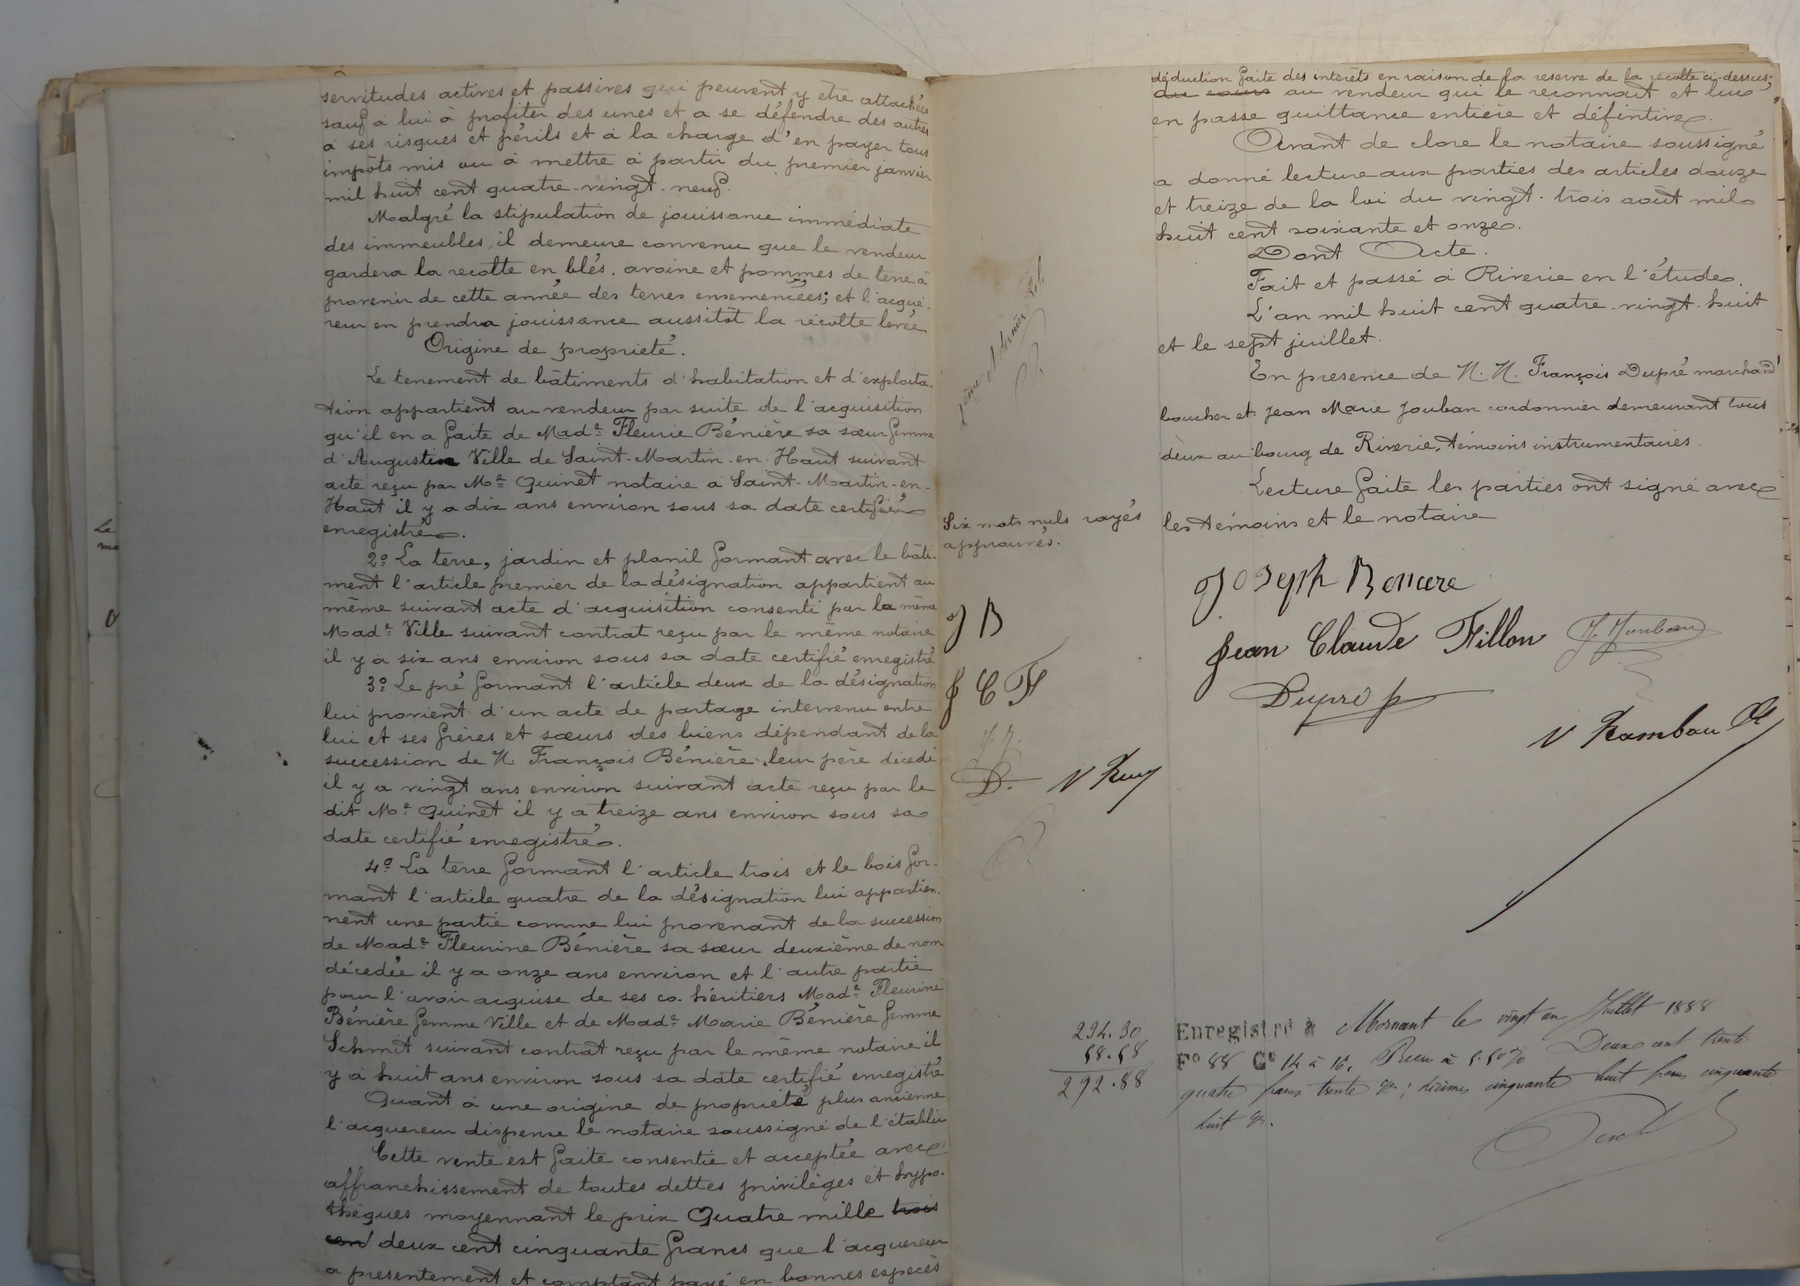 servitudes actives et passives qui peuvent y être attachées
sauf à lui à profiter des unes et a se défendre des autres
a ses risques et périls et à la charge d'en payer tous
impôts mis ou à mettre à partir du premier janvier
mil huit cent quatre-vingt-neuf.
Malgré la stipulation de jouissance immédiate
des immeubles, il demeure convenu que le vendeur
gardera la recolte en blés, avoine et pommes de terre à
provenir de cette année des terres ensemencées; et l'acqué-
reur en prendra jouissance aussitôt la récolte levée
Origine de propriété.
Le tenement de bâtiments d'habitation et d'exploita-
tion appartient au vendeur par suite de l'acquisition
qu'il en a faite de Made Fleurie Bénière sa sœur femme
d'Augustin Ville de Saint-Martin-en-Haut suivant
acte reçu par Me Quinet notaire a Saint-Martin-en-
Haut il y a dix ans environ sous sa date certifié
enregistré.
2o La terre, jardin et planil formant avec le bâti-
ment l'article premier de la désignation appartient au
même suivant acte d'acquisition consenti par la même
Made Ville suivant contrat reçu par le même notaire
il y a six ans environ sous sa date certifié enregistré
3o Le pré formant l'article deux de la désignation
lui provient d'un acte de partage intervenu entre
lui et ses frères et sœurs des biens dépendant de la
succession de M. François Bénière leur père décédé
il y a vingt ans environ suivant acte reçu par le
dit Me Quinet il y a treize ans environ sous sa
date certifié enregistré.
4o La terre formant l'article trois et le bois for-
mant l'article quatre de la désignation lui appartien-
nent une partie comme lui provenant de la succession
de Made Fleurine Bénière sa sœur deuxième de nom
décedée il y a onze ans environ et l'autre partie
pour l'avoir acquise de ses co-héritiers Made Fleurine
Bénière femme Ville et de Made Marie Bénière femme
Schmit suivant contrat reçu par le même notaire il
y a huit ans environ sous sa date certifié enregistré
Quant à une origine de propriété plus ancienne
l'acquereur dispense le notaire soussigné de l'établir
Cette vente est faite consentie et acceptée avec
affranchissement de toutes dettes privilèges et hypo-
thèques moyennant le prix Quatre mille trois
cent deux cent cinquante francs que l'acquereur
a presentement et comptant payé en bonnes especes
déduction faite des interêts en raison de la reserve de la recolte ci-dessus;
du cours au vendeur qui le reconnait et lui
en passe quittance entière et défintive.
Avant de clore le notaire soussigné
a donné lecture aux parties des articles douze
et treize de la loi du vingt-trois août mil
huit cent soixante et onze.
Dont Acte.
Fait et passé à Riverie en l'étude.
L'an mil huit cent quatre-vingt-huit
et le sept juillet.
En presence de M. M. François Dupré marchand
boucher et Jean Marie Jouban cordonnier demeurant tous
deux au bourg de Riverie, témoins instrumentaires.
Lecture faite les parties ont signé avec
les témoins et le notaire
Six mots nuls rayés
approuvés.
J B
J C F
J. J.
D.
Joseph Beniere
Jean Claude Fillon J. Jouban
Dupré f
V Rambau
234.30
58.58
292.88
Enregistré à Mornant le vingt un Juillet 1888
Fo 88 Co 14 à 16. Reçu à 5.50% Deux cent trente
quatre francs trente cs; décimes cinquante huit francs cinquante
huit cs.